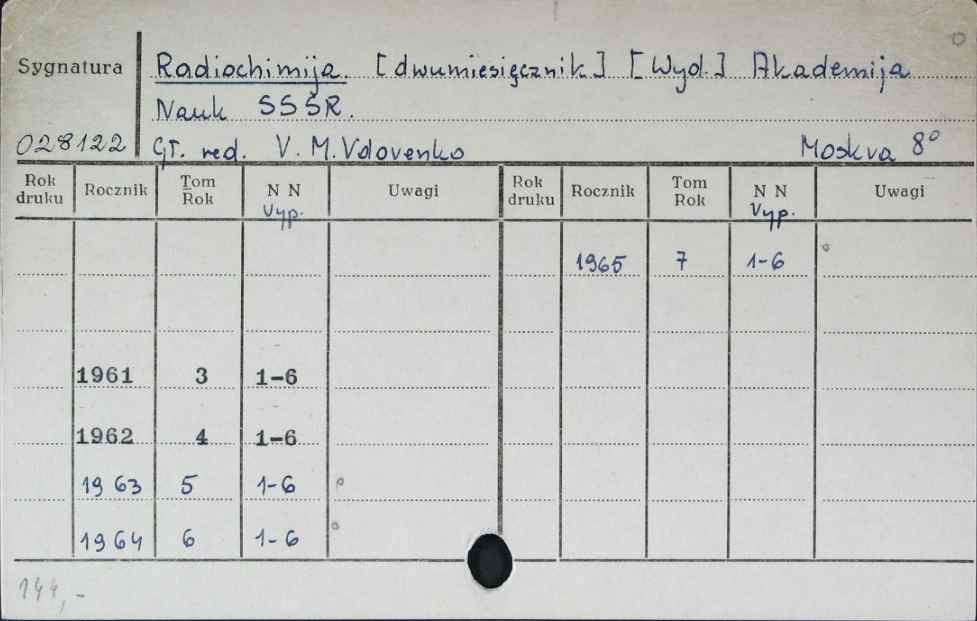 Sygnatura Radiochimija. [dwumiesięcznik] [Wyd.] Akademija
Nauk SSSR.
028122 Gł. red. V. M. Vdovenko Moskva 8°
Rok druku Rocznik Tom Rok N N Vyp. Uwagi Rok druku Rocznik Tom Rok N N Vyp. Uwagi
1965 7 1-6
1961 3 1-6
1962 4 1-6
1963 5 1-6
1964 6 1-6
144,-